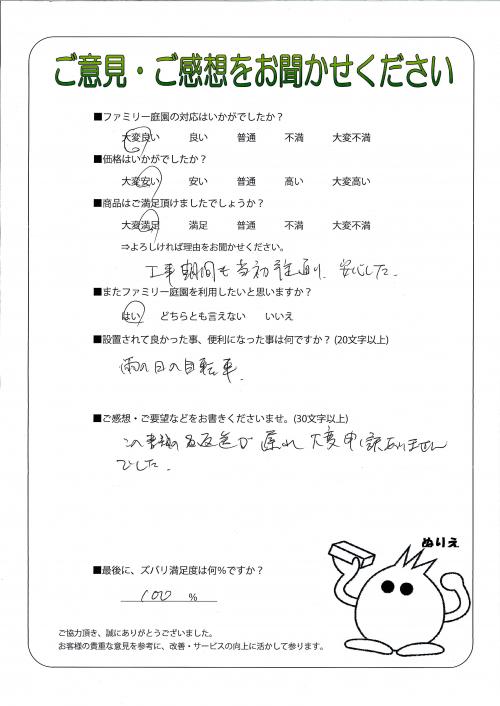 ご意見・ご感想をお聞かせください
■ファミリー庭園の対応はいかがでしたか？
大変良い 良い 普通 不満 大変不満
■価格はいかがでしたか？
大変安い 安い 普通 高い 大変高い
■商品はご満足頂けましたでしょうか？
大変満足 満足 普通 不満 大変不満
⇒よろしければ理由をお聞かせください。
工事期間も当初 通り、安心した。
■またファミリー庭園を利用したいと思いますか？
はい どちらとも言えない いいえ
■設置されて良かった事、便利になった事は何ですか？(20文字以上)
雨の日の自転車。
■ご感想・ご要望などをお書きくださいませ。(30文字以上)
この 返送が遅れ 大変申し訳ありません
でした。
ぬりえ
■最後に、ズバリ満足度は何％ですか？
100 ％
ご協力頂き、誠にありがとうございました。
お客様の貴重な意見を参考に、改善・サービスの向上に活かして参ります。